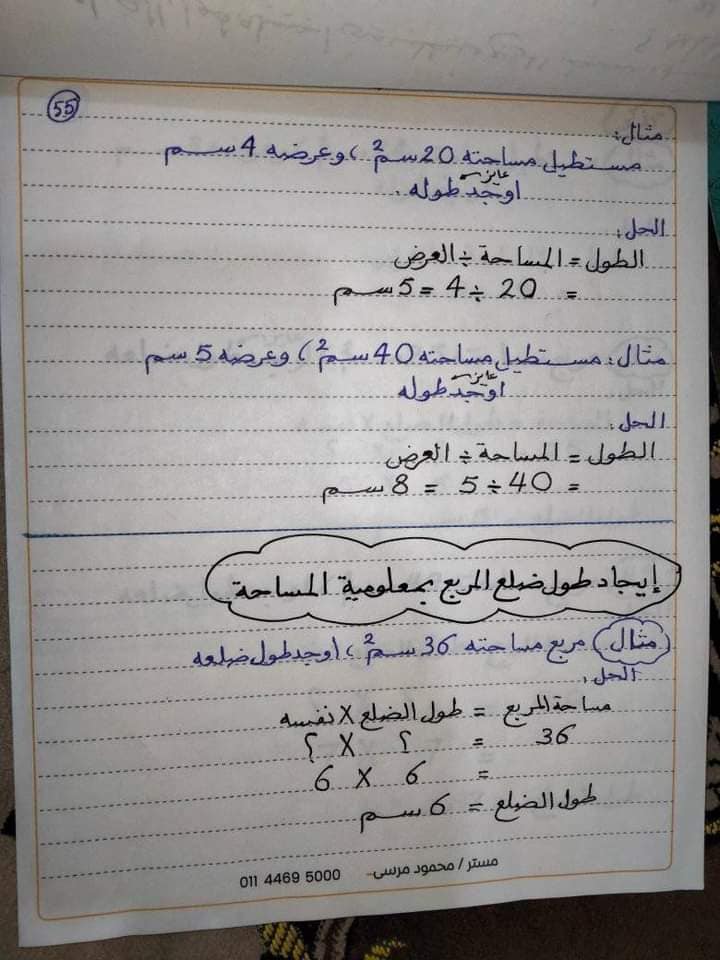 55
مثال:
مستطيل مساحته 20 سم2، وعرضه 4 سم
عايز
اوجد طوله.
الحل:
الطول = المساحة ÷ العرض
= 20 ÷ 4 = 5 سم
مثال: مستطيل مساحته 40 سم2، وعرضه 5 سم
عايز
اوجد طوله
الحل:
الطول = المساحة ÷ العرض
= 40 ÷ 5 = 8 سم
إيجاد طول ضلع المربع بمعلومية المساحة
مثال مربع مساحته 36 سم2، أوجد طول ضلعه
الحل:
مساحة المربع = طول الضلع X نفسه
36 = ؟ X ؟
= 6 X 6
طول الضلع = 6 سم
مستر / محمود مرسى 011 4469 5000